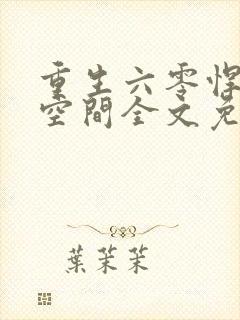 重生六零悍
空間全文免
葉茉茉